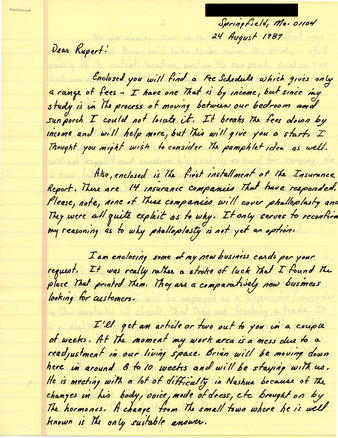 Springfield, Ma. 01104
24 August 1987
Dear Rupert:
Enclosed you will find a Fee Schedule which gives only
a range of fees - I have one that is by income, but since my
study is in the process of moving between our bedroom and
sunporch I could not locate it. It breaks the fee down by
income and will help more, but this will give you a start. I
Thought you might wish to consider the pamphlet idea as well.
Also, enclosed is the first installment of the Insurance
Report. There are 14 insurance companies that have responded.
Please, note, none of these companies will cover phalloplasty and
They were all quite explicit as to why. It only serves to reconfirm
my reasoning as to why phalloplasty is not yet an option.
I am enclosing some of my new business cards per your
request. It was really rather a stroke of luck that I found the
place that printed them. They are a comparatively new business
looking for customers.
I'll get an article or two out to you in a couple
of weeks. At the moment my work area is a mess due to a
readjustment in our living space. Brian will be moving down
here in around 8 to 10 weeks and will be staying with us.
He is meeting with a lot of difficulty in Nashua because of the
changes in his body, voice, mode of dress, etc brought on by
the hormones. A change from the small town where he is well
known is the only suitable answer.